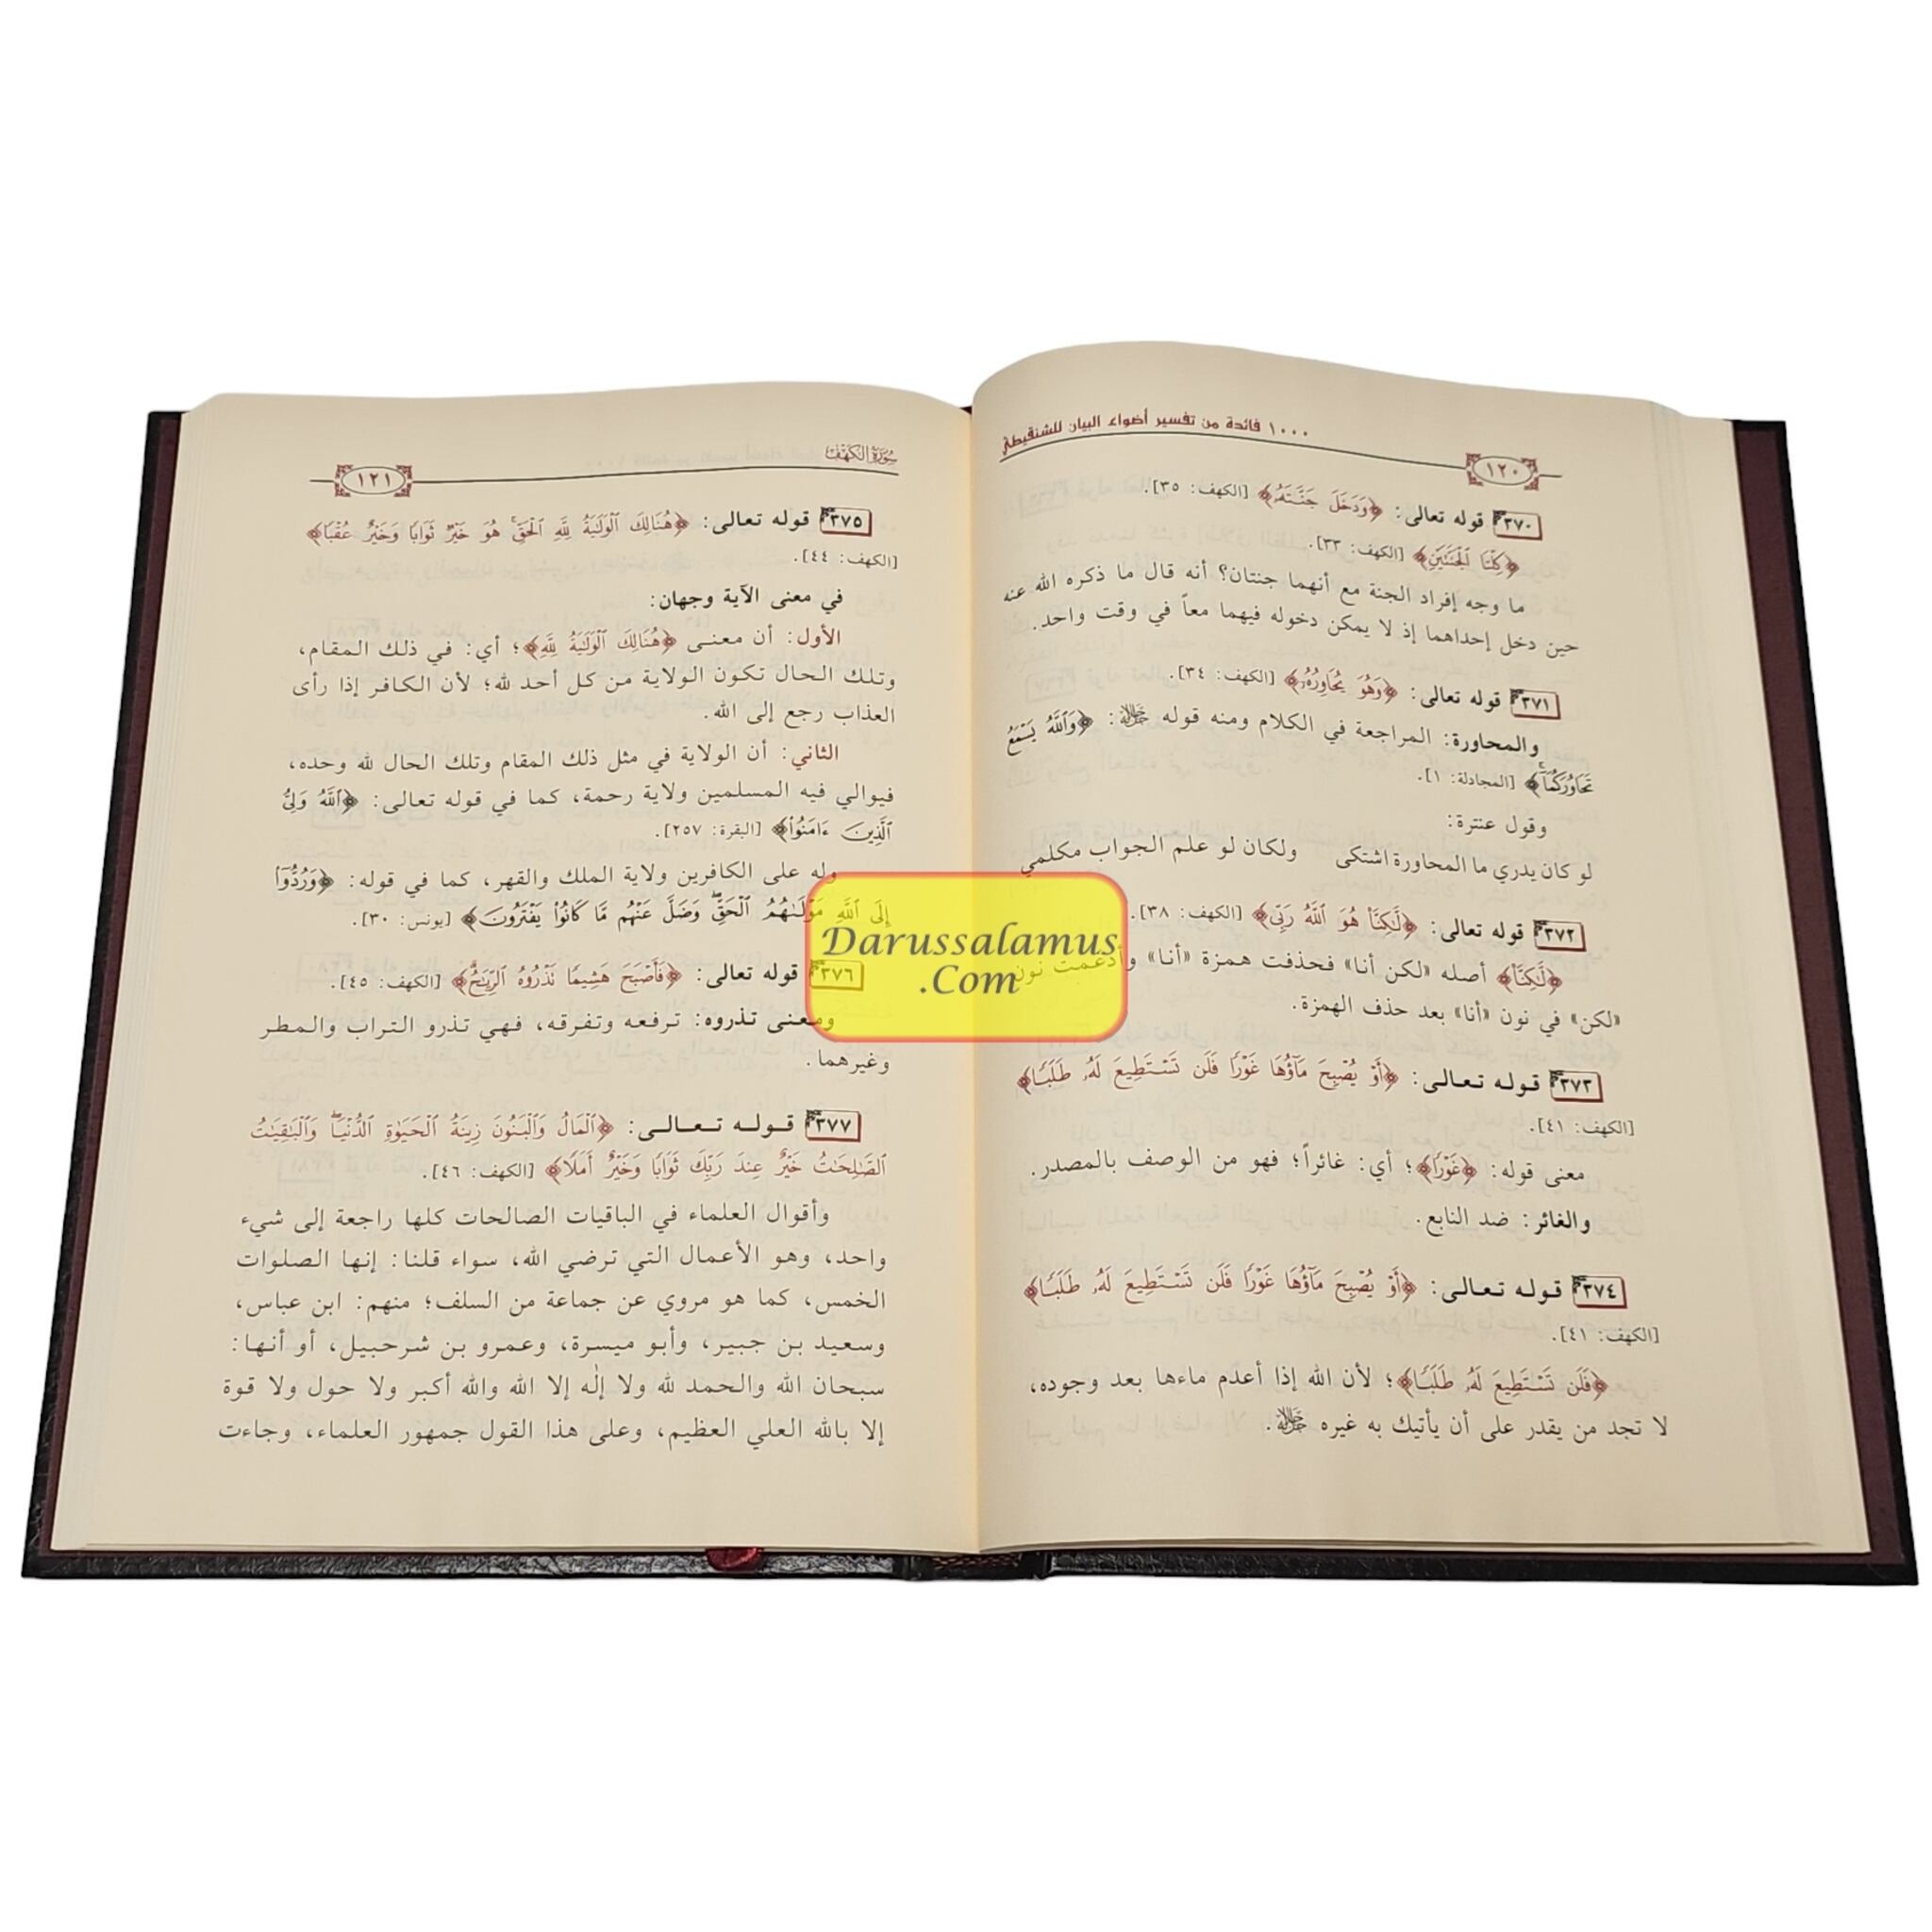 ١٠٠٠ فائدة من تفسير أضواء البيان للشنقيطي
١٢٠
٣٧٠ قوله تعالى: ﴿وَدَخَلَ جَنَّتَهُۥ﴾ [الكهف: ٣٥].
﴿كِلْتَا ٱلْجَنَّتَيْنِ﴾ [الكهف: ٣٣].
ما وجه إفراد الجنة مع أنهما جنتان؟ أنه قال ما ذكره الله عنه
حين دخل إحداهما إذ لا يمكن دخوله فيهما معاً في وقت واحد.
٣٧١ قوله تعالى: ﴿وَهُوَ يُحَاوِرُهُۥ﴾ [الكهف: ٣٤].
والمحاورة: المراجعة في الكلام ومنه قوله ﷻ: ﴿وَٱللَّهُ يَسْمَعُ
تَحَاوُرَكُمَآ﴾ [المجادلة: ١].
وقول عنترة:
لو كان يدري ما المحاورة اشتكى ولكان لو علم الجواب مكلمي
٣٧٢ قوله تعالى: ﴿لَّٰكِنَّا۠ هُوَ ٱللَّهُ رَبِّى﴾ [الكهف: ٣٨].
﴿لَّٰكِنَّا۠﴾ أصله «لكن أنا» فحذفت همزة «أنا» وأدغمت نون
«لكن» في نون «أنا» بعد حذف الهمزة.
٣٧٣ قوله تعالى: ﴿أَوْ يُصْبِحَ مَآؤُهَا غَوْرًا فَلَن تَسْتَطِيعَ لَهُۥ طَلَبًا﴾
[الكهف: ٤١].
معنى قوله: ﴿غَوْرًا﴾؛ أي: غائراً؛ فهو من الوصف بالمصدر.
والغائر: ضد النابع.
٣٧٤ قوله تعالى: ﴿أَوْ يُصْبِحَ مَآؤُهَا غَوْرًا فَلَن تَسْتَطِيعَ لَهُۥ طَلَبًا﴾
[الكهف: ٤١].
﴿فَلَن تَسْتَطِيعَ لَهُۥ طَلَبًا﴾؛ لأن الله إذا أعدم ماءها بعد وجوده،
لا تجد من يقدر على أن يأتيك به غيره ﷻ.
سُورَةُ الكَهْف
١٢١
٣٧٥ قوله تعالى: ﴿هُنَالِكَ ٱلْوَلَٰيَةُ لِلَّهِ ٱلْحَقِّ ۚ هُوَ خَيْرٌ ثَوَابًا وَخَيْرٌ عُقْبًا﴾
[الكهف: ٤٤].
في معنى الآية وجهان:
الأول: أن معنى ﴿هُنَالِكَ ٱلْوَلَٰيَةُ لِلَّهِ﴾؛ أي: في ذلك المقام،
وتلك الحال تكون الولاية من كل أحد لله؛ لأن الكافر إذا رأى
العذاب رجع إلى الله.
الثاني: أن الولاية في مثل ذلك المقام وتلك الحال لله وحده،
فيوالي فيه المسلمين ولاية رحمة، كما في قوله تعالى: ﴿ٱللَّهُ وَلِىُّ
ٱلَّذِينَ ءَامَنُوا۟﴾ [البقرة: ٢٥٧].
وله على الكافرين ولاية الملك والقهر، كما في قوله: ﴿وَرُدُّوٓا۟
إِلَى ٱللَّهِ مَوْلَىٰهُمُ ٱلْحَقِّ ۖ وَضَلَّ عَنْهُم مَّا كَانُوا۟ يَفْتَرُونَ﴾ [يونس: ٣٠].
٣٧٦ قوله تعالى: ﴿فَأَصْبَحَ هَشِيمًا تَذْرُوهُ ٱلرِّيَٰحُ﴾ [الكهف: ٤٥].
ومعنى تذروه: ترفعه وتفرقه، فهي تذرو التراب والمطر
وغيرهما.
٣٧٧ قوله تعالى: ﴿ٱلْمَالُ وَٱلْبَنُونَ زِينَةُ ٱلْحَيَوٰةِ ٱلدُّنْيَا ۖ وَٱلْبَٰقِيَٰتُ
ٱلصَّٰلِحَٰتُ خَيْرٌ عِندَ رَبِّكَ ثَوَابًا وَخَيْرٌ أَمَلًا﴾ [الكهف: ٤٦].
وأقوال العلماء في الباقيات الصالحات كلها راجعة إلى شيء
واحد، وهو الأعمال التي ترضي الله، سواء قلنا: إنها الصلوات
الخمس، كما هو مروي عن جماعة من السلف؛ منهم: ابن عباس،
وسعيد بن جبير، وأبو ميسرة، وعمرو بن شرحبيل، أو أنها:
سبحان الله والحمد لله ولا إلٰه إلا الله والله أكبر ولا حول ولا قوة
إلا بالله العلي العظيم، وعلى هذا القول جمهور العلماء، وجاءت
Darussalamus
.Com